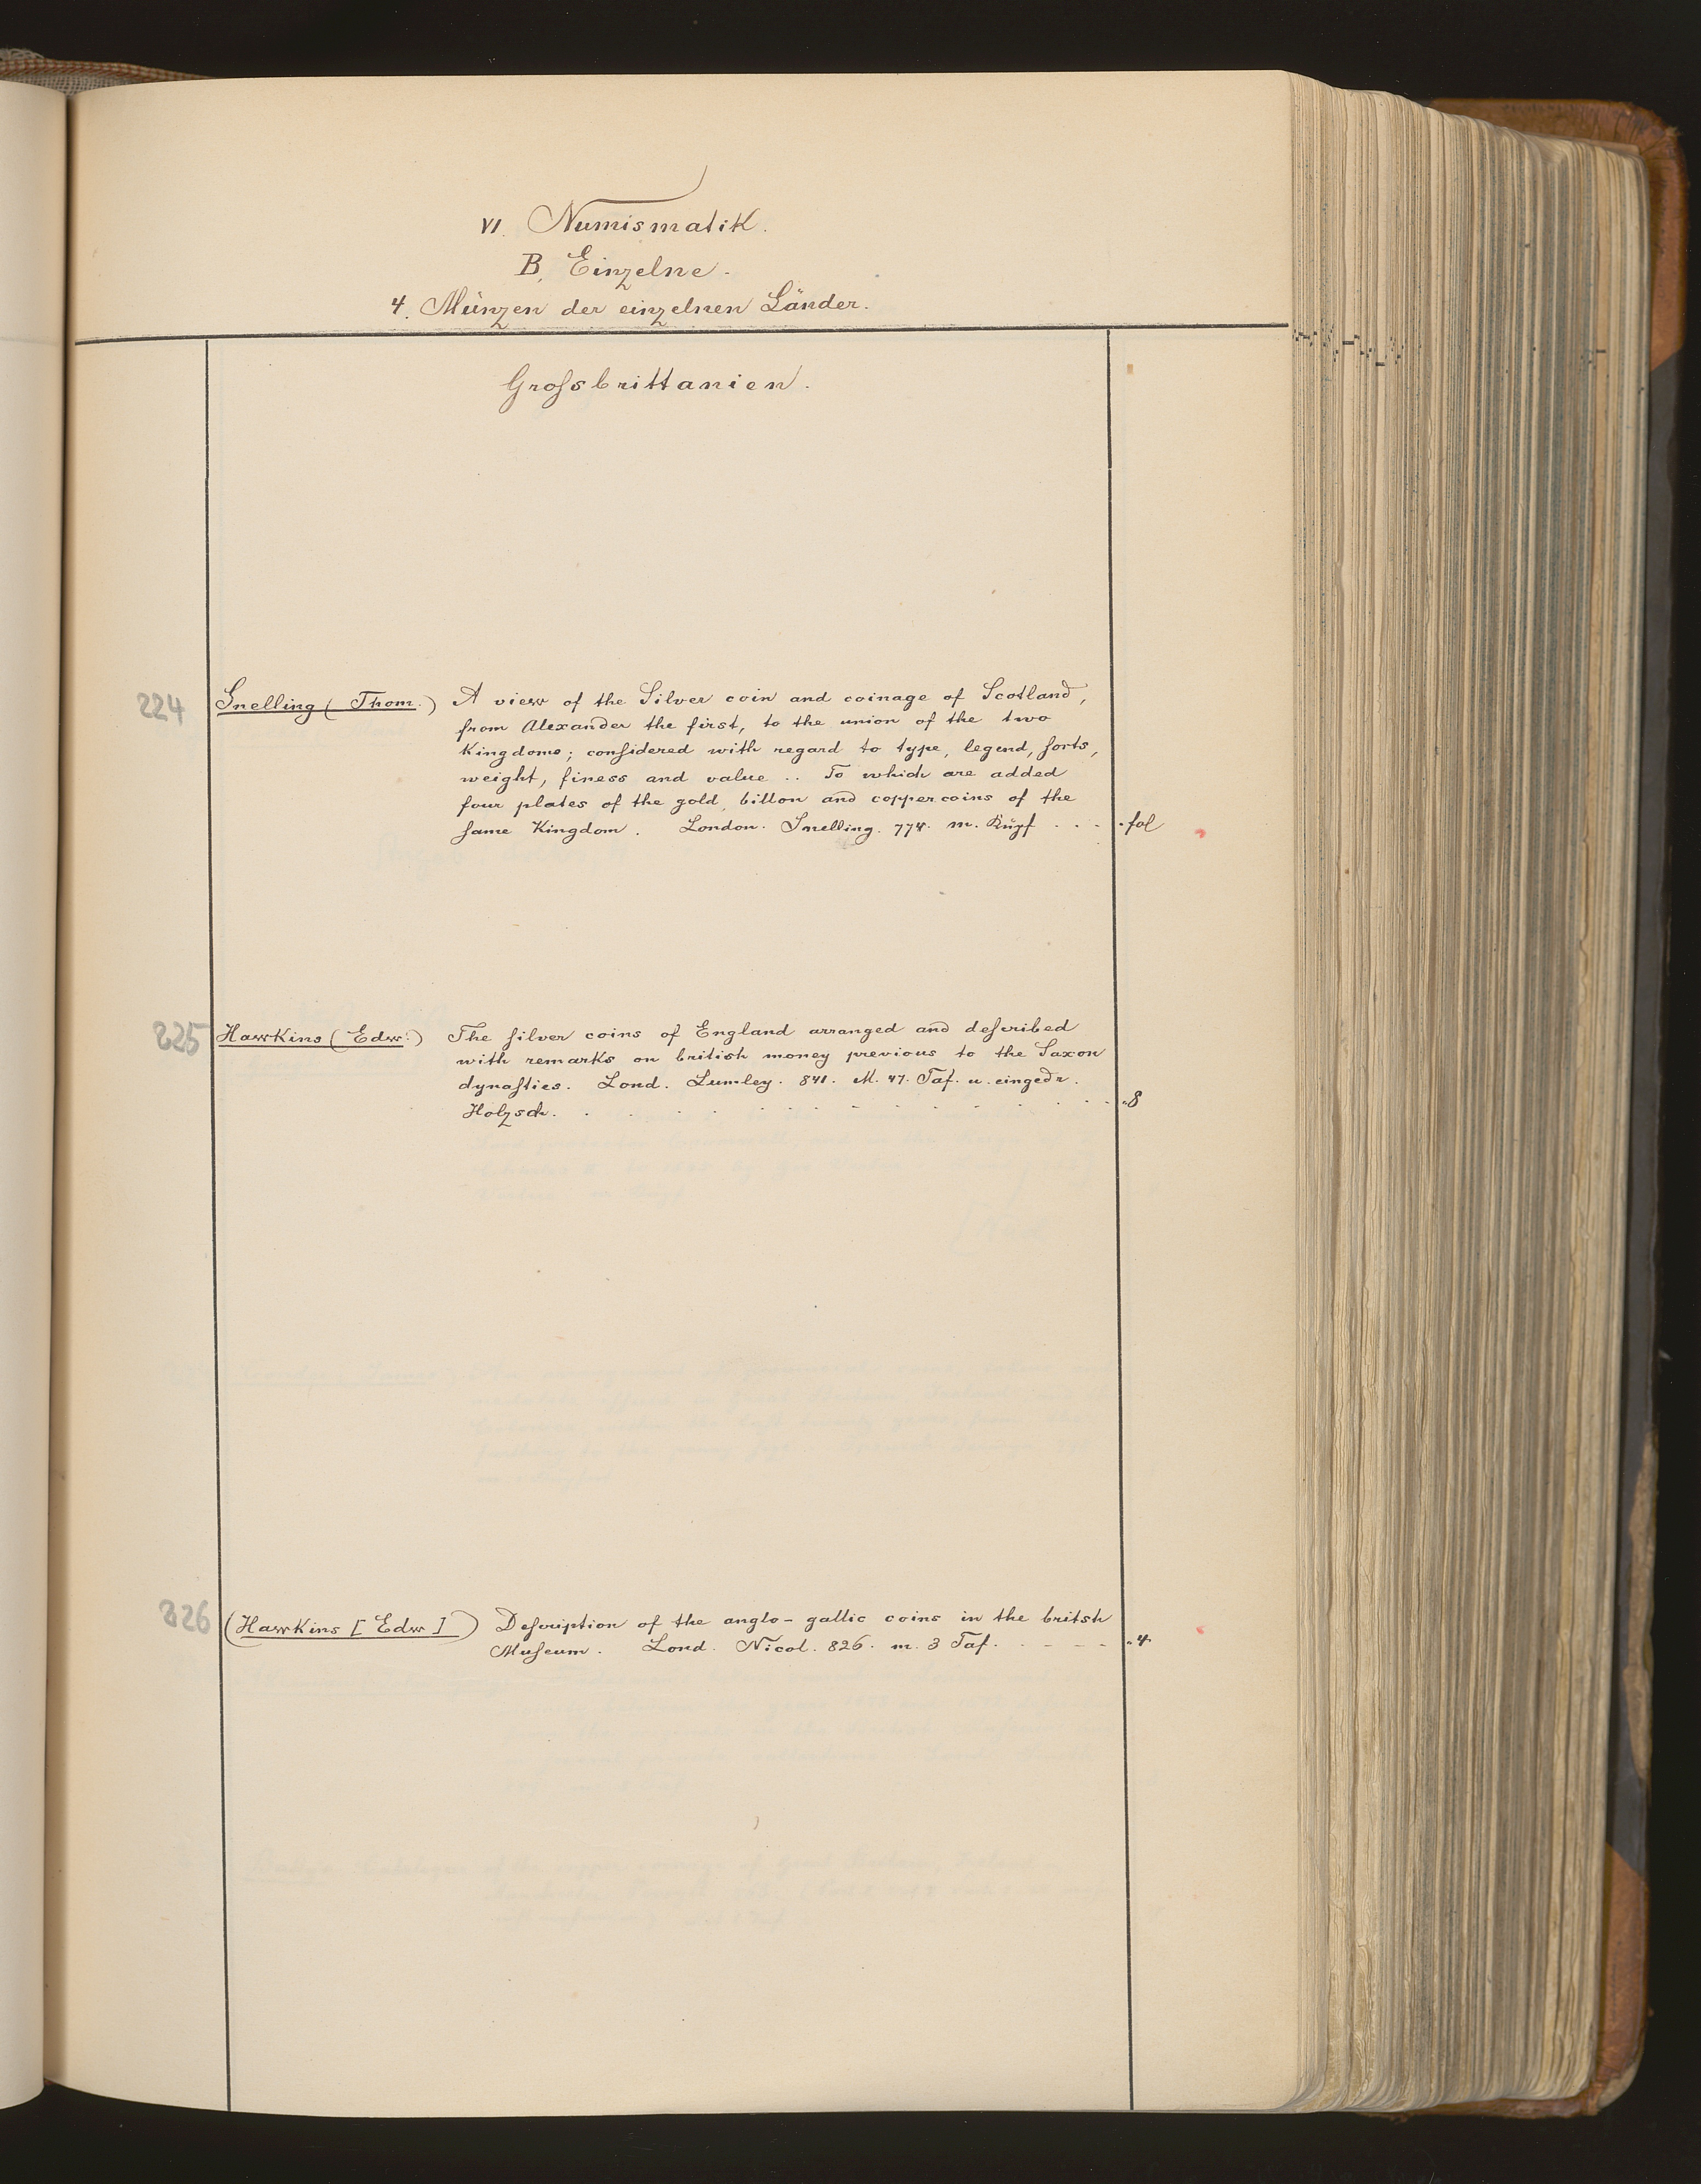 VI. Numismatik.
B. Einzelne.
4. Münzen der einzelnen Länder.
Großsbrittanien.
224 Snelling (Thom.) A view of the Silver coin and coinage of Scotland,
from Alexander the first, to the union of the two
Kingdoms; conſidered with regard to type, legend, ſorts,
weight, finess and value .. To which are added
four plates of the gold, billon and copper coins of the
ſame Kingdom. London. Snelling. 774. m. Kupf - - - . fol
225 Hawkins (Edw.) The ſilver coins of England arranged and deſcribed
with remarks on british money previous to the Saxon
dynaſties. Lond. Lumley. 841. M. 47. Taf. u. eingedr.
Holzsch. . . . . . . . . . . . . . „8
226 (Hawkins [Edw]) Deſcription of the anglo-gallic coins in the britsh
Muſeum. Lond. Nicol. 826. m. 3 Taf. - - - - „4